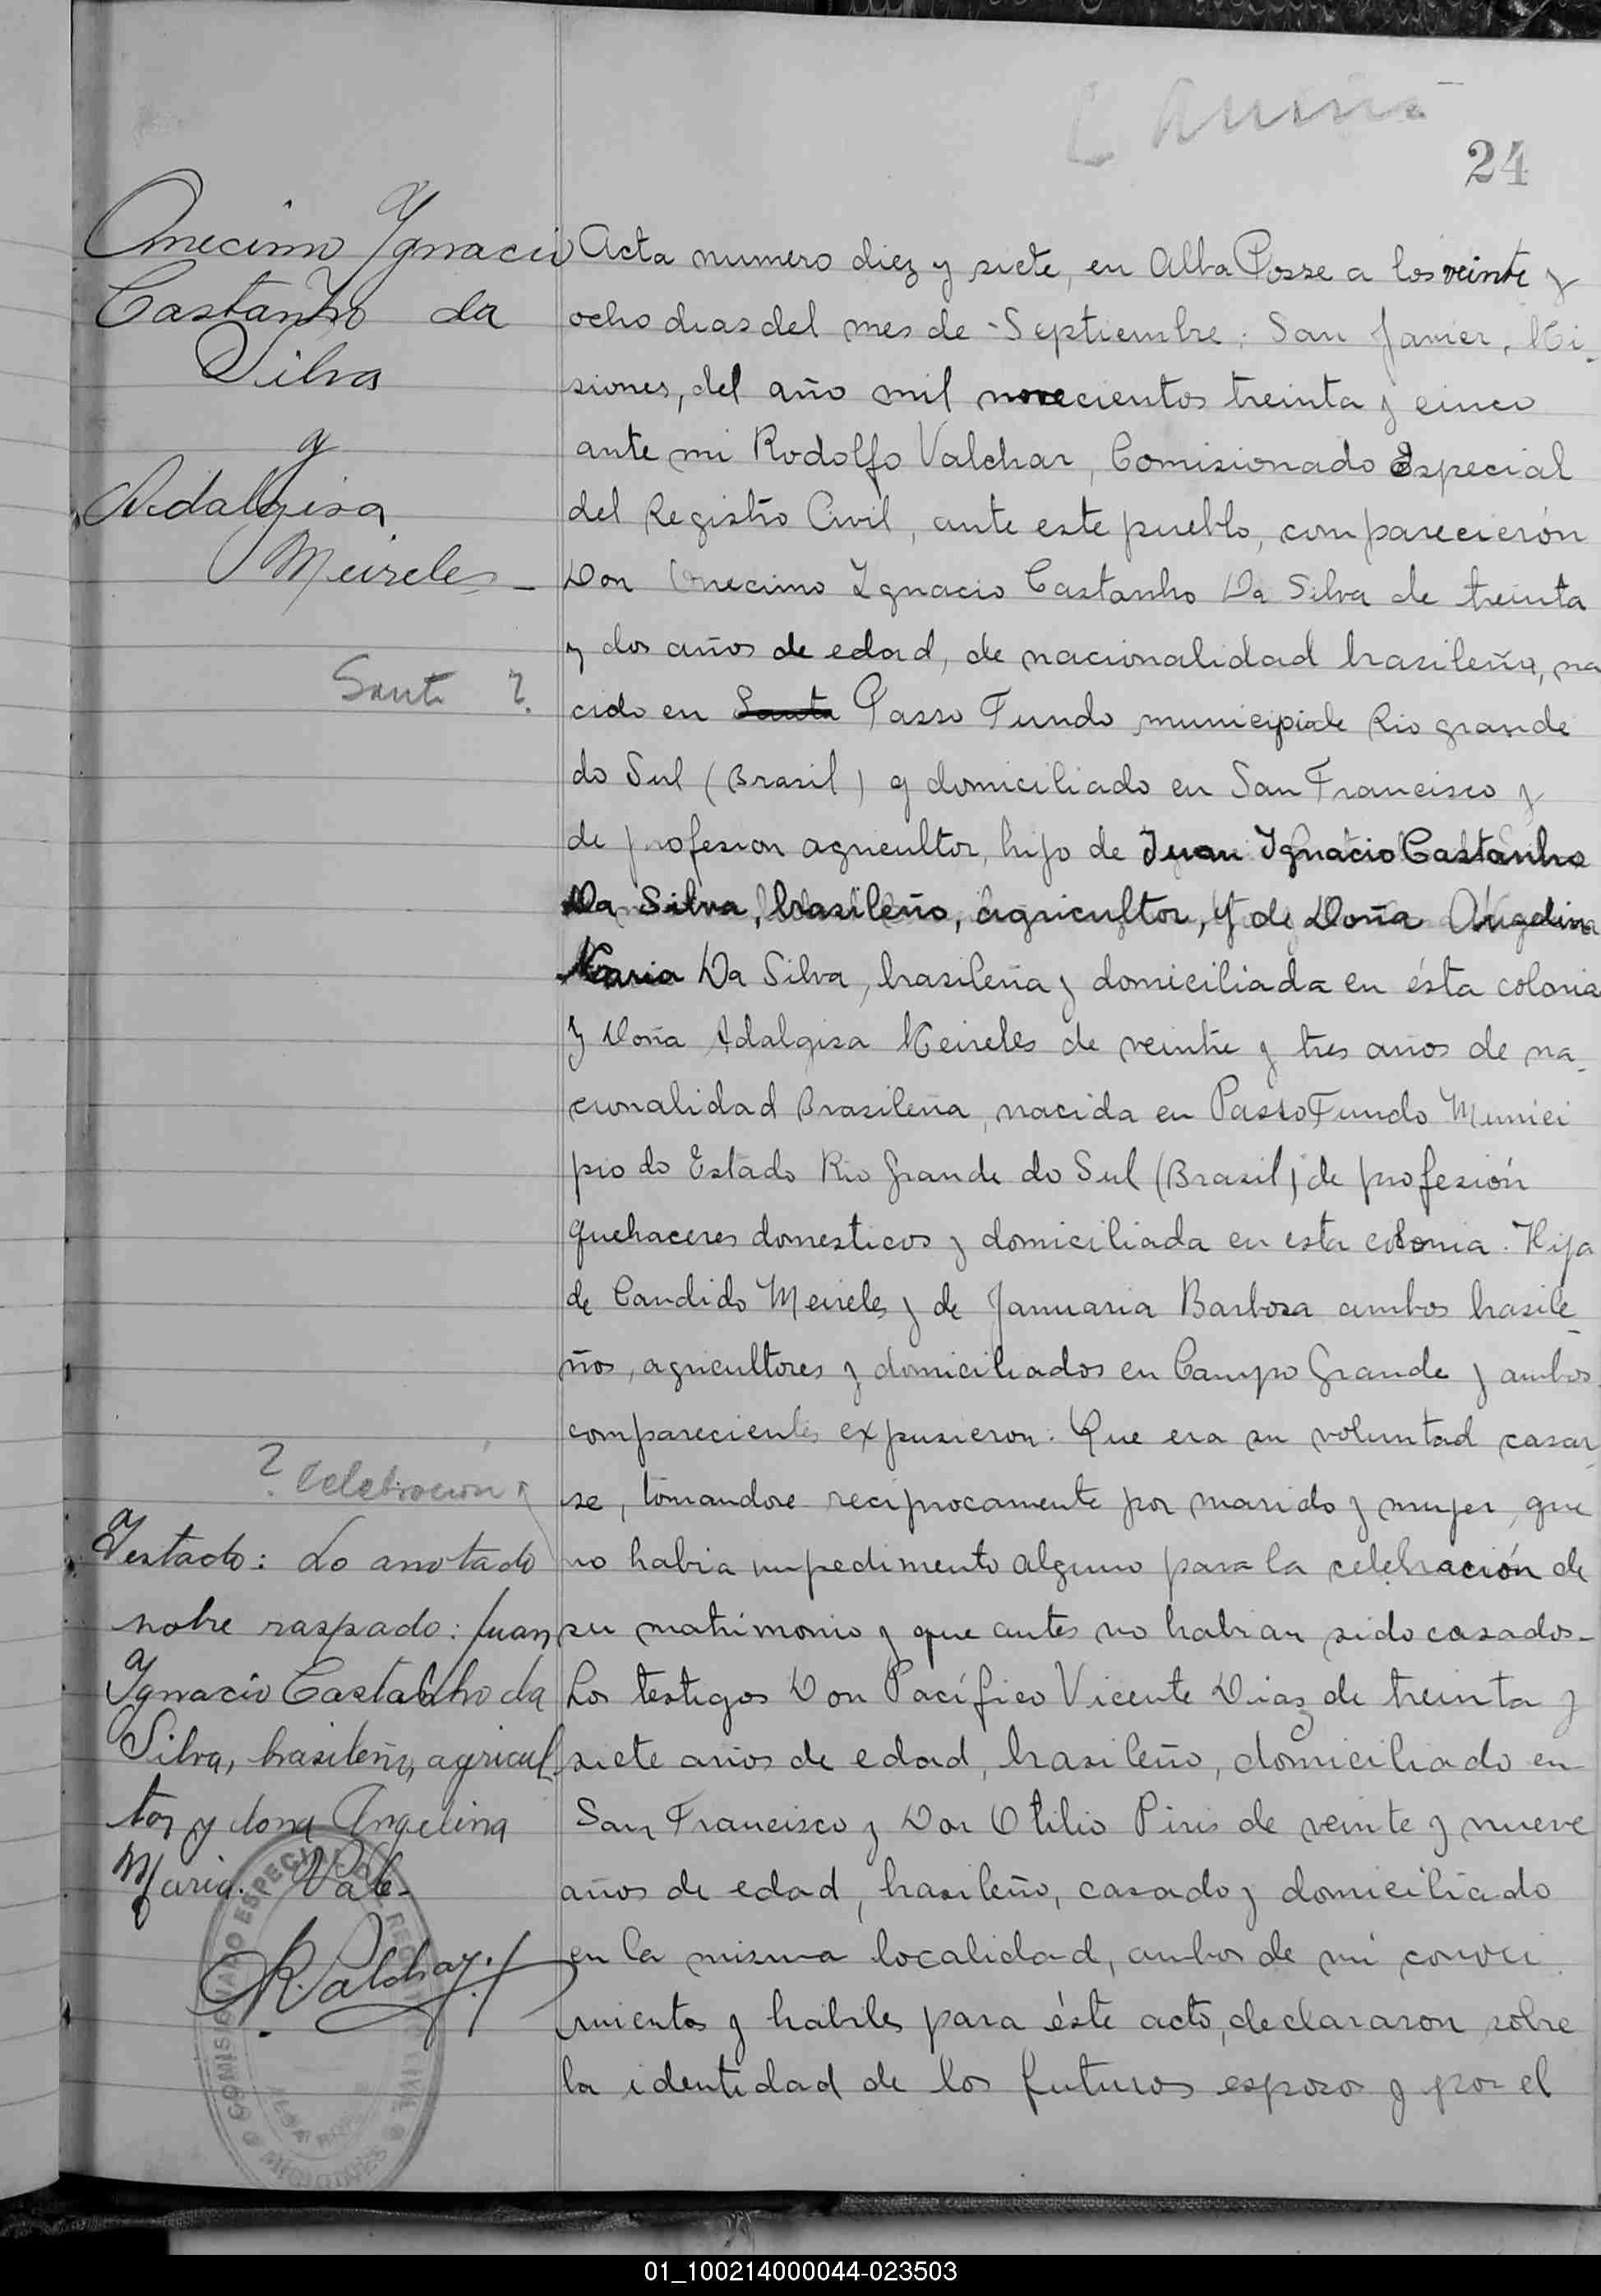 24
Onecimo Ygnacio
Castanho da
Silva
y
Adalgisa
Meireles_
Santa ?
Acta numero diez y siete, en Alba Posse a los veinte y
ocho dias del mes de Septiembre; San Javier, Mi-
siones, del año mil novecientos treinta y cinco
ante mi Rodolfo Valchar, Comisionado Especial
del Registro Civil, ante este pueblo, comparecierón
Don Onecimo Ygnacio Castanho Da Silva de treinta
y dos años de edad, de nacionalidad brasileña, na
cido en Santa Passo Fundo municipiode Rio grande
do Sul (Brasil) y domiciliado en San Francisco y
de profesion agricultor, hijo de Juan Ygnacio Castanho
Da Silva, brasileño, agricultor, y de Doña Angelina
Maria Da Silva, brasileña y domiciliada en ésta colonia
y Doña Adalgisa Meireles de veinte y tres años de na-
cionalidad Brasileña, nacida en Passo Fundo Munici
pio do Estado Rio Grande do Sul (Brasil) de profesión
quehaceres domesticos y domiciliada en esta colonia. Hija
de Candido Meireles y de Januaria Barbosa ambos brasile-
ños, agricultores y domiciliados en Campo Grande y ambos
comparecientes expusieron: Que era su voluntad casar-
se, tomandose reciprocamente por marido y mujer, que
no habia impedimento alguno para la celebración de
su matrimonio y que antes no habian sido casados-
Los testigos Don Pacífico Vicente Diaz de treinta y
siete años de edad, brasileño, domiciliado en
San Francisco y Don Otilio Piris de veinte y nueve
años de edad, brasileño, casado y domiciliado
en la misma localidad, ambos de mi conoci
mientos y habiles para éste acto, declararon sobre
la identidad de los futuros esposos y por el
? Celebracion
Testado: Lo anotado
sobre raspado: Juan
Ygnacio Castanho da
Silva, brasileño, agricul-
tor y dona Angelina
Maria. Vale-
R. Valchar
COMISIONADO ESPECIAL DEL REGISTRO CIVIL
MISIONES
01_100214000044-023503